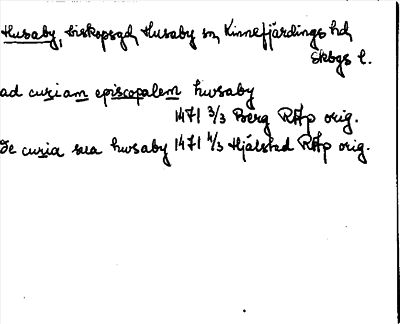 Husaby, biskopsgd, Husaby sn, Kinnefjärdings hd,
Skbgs l.
ad curiam episcopalem hwsaby
1471 3/3 Berg RAp orig.
de curia sua hwsaby 1471 4/3 Hjälstad RAp orig.